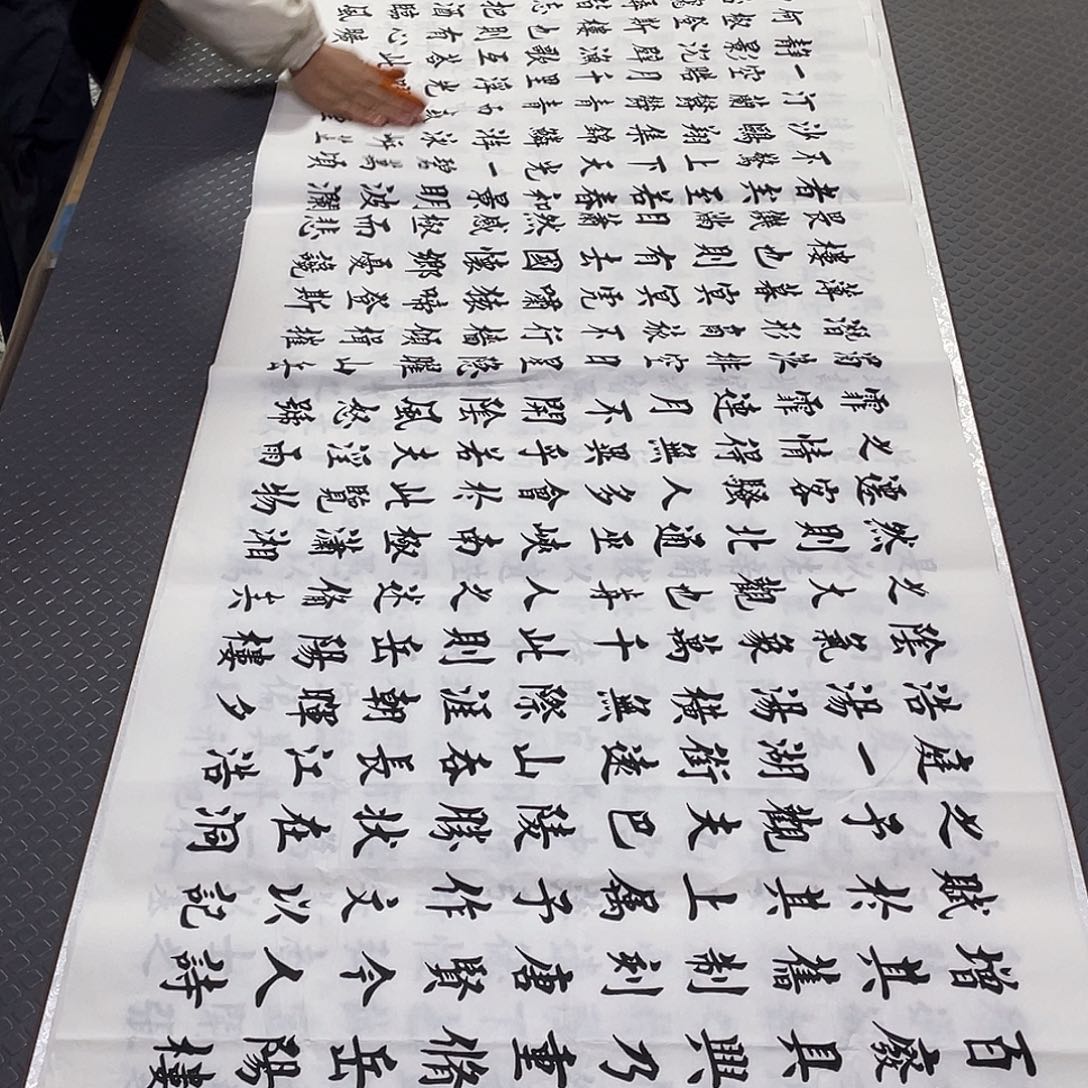 百廢具興乃重修岳陽樓
增其舊制刻唐賢今人詩
賦於其上属予作文以記
之予觀夫巴陵勝狀在洞
庭一湖銜遠山吞長江浩
浩湯湯橫無際涯朝暉夕
陰氣象萬千此則岳陽樓
之大觀也前人之述備矣
然則北通巫峽南極瀟湘
遷客騷人多會於此覽物
之情得無異乎若夫淫雨
霏霏連月不開陰風怒號
濁浪排空日星隱曜山岳
潛形商旅不行檣傾楫摧
薄暮冥冥虎嘯猿啼登斯
樓也則有去國懷鄉憂讒
畏譏滿目蕭然感極而悲
者矣至若春和景明波瀾
不驚上下天光一碧萬頃
沙鷗翔集錦鱗游泳岸芷
汀蘭鬱鬱青青而
一空皓月千里浮光
靜影沈璧漁歌互答此
何極登斯樓也則有心